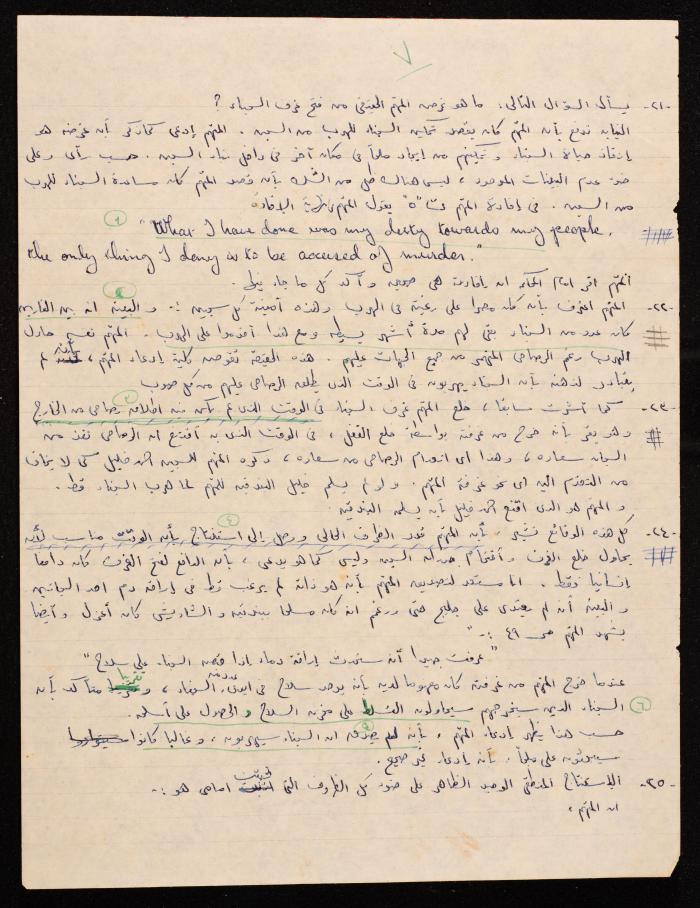 ٧
-٢١- يسأل السؤال التالي: ما هو غرض المتهم الحقيقي من فتح غرف السجناء ؟
النيابه تدفع بأن المتهم كان يقصد تمكين السجناء للهرب من السجن. المتهم إدعى كما ذكر بأن غرضه هو
إنقاذ حياة السجناء و تمكينهم من إيجاد ملجأ في مكان آخر في داخل بناء السجن. حسب رأي وعلى
ضوء عدم البينات الموجود، ليس هنالك ظل من الشك بأن قصد المتهم كان مساعدة السجناء للهرب
من السجن. في إفادة المتهم ت/"٥" يقول المتهم الإفادة
١
"What I have done was my duty towards my people.
the only thing I deny is to be accused of murder."
المتهم اقر امام المحكمة ان إفادته هي صحيحه و أكد كل ما جاء بها.
٢
-٢٢- المتهم اعترف بأنه كان مصرا على رغبته في الهرب وهذه أمنية كل سجين :- و البينة انه بين الفارين
كان عدد من السجناء بقي لهم مدة أشهر بسيطه ومع هذا أقدموا على الهرب. المتهم نفسه حاول
الهرب رغم الرصاص المنهمر من جميع الجهات عليهم. هذه الفرضية تقوض كلية إدعاء المتهم، بأنه لم
يتبادر لذهنه بأن السجناء يهربون في الوقت الذي يطلق الرصاص عليهم من كل صوب
٣
-٢٣- كما أشرت سابقا، خلع المتهم غرف السجناء في الوقت الذي لم يكن فيه اطلاقه رصاص من الخارج
وهو يقر بأنه خرج من غرفته بواسطة خلع القفل، في الوقت الذي به أقتنع ان الرصاص نفذ من
السجان سعاده، وهذا اي انعدام الرصاص من سعاده، ذكره المتهم للسجين احمد خليل كي لا يخاف
من التقدم اليه اي نحو غرفة المتهم. ولو لم يسلم خليل البندقيه للمتهم لما هرب السجناء قط.
و المتهم هو الذي اقنع احمد خليل بأن يسلمه البندقية
٤
-٢٤- كل هذه الوقائع تشير، بأن المتهم قدر الظرف الحالي و وصل إلى استنتاج بأن الوقت مناسب لأن
يحاول خلع الغرف و أقتحام السجن وليس كما هو يدعي، بأن الدافع لفتح الغرف كان دافعا
إنسانيا فقط. انا مستعد لتصديق المتهم بأنه هو ذاته لم يرغب قط في إراقة دم احد السجانين
و البينه أنه لم يعتدى على حتى ورغم انه كان مسلحا ببندقيه و الشاويش كان أعزل و أيضا
يشهد المتهم ص ٤٩ :-"
"عرفت جيدا أنه ستحدث إراقة دماء إذا قبض السجناء على سلاح"
عندما خرج المتهم من غرفته كان مفهوما لديه بأنه يوجد سلاح في ايدي السجناء، و تقريبا متأكد بأن
٦
السجناء الذين سيخرجهم سيحاولون التسلط على مخزن السلاح و الحصول على أسلحه.
٥
حسب هذا يظهر إدعاء المتهم، بأنه لم يصدق ان السجناء سيهربون، و غالبا كانوا
سيبحثون على ملجأ، بأنه إدعاء غير صحيح.
-٢٥- الإستنتاج المنطقي الوحيد الظاهر على ضوء كل الظروف التي اثبتت امامي هو :-
ان المتهم،